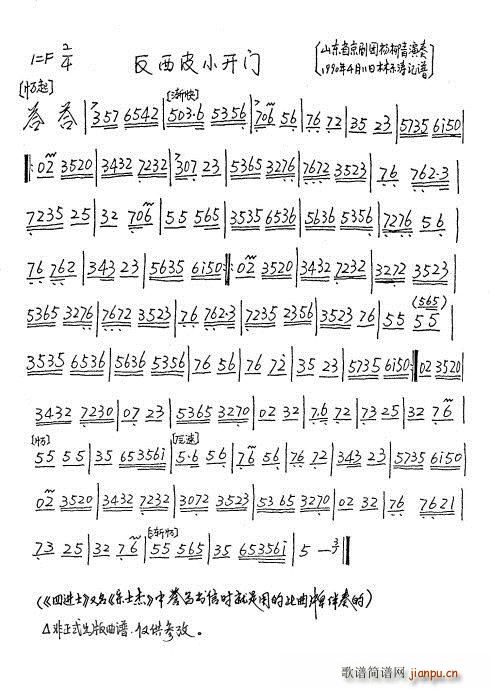 1=F 2/4 反西皮小开门 (山东省京剧团杨柳青演奏
1990年4月11日林东涛记谱)
[中万起] [渐快]
答 答 | 3 5 7 6542 | 503·6 5356 | 706 56 | 76 72 | 35 23 | 5735 6i50 |
‖: 02 3520 | 3432 7232 | 307 23 | 5365 3276 | 7672 3523 | 76 762·3 |
7235 25 | 32 706 | 55 565 | 3535 6536 | 5636 5356 | 7276 56 |
76 762 | 343 23 | 5635 6i50 :‖: 02 3520 | 3432 7232 | 3272 3523 |
5365 3276 | 7672 3523 | 76 762·3 | 7235 2356 | 3523 76 | 55 (565) 55 |
3535 6536 | 5636 5356 | 76 56 | 76 72 | 35 23 | 5735 6i50 :‖ 02 3520 |
3432 7230 | 07 23 | 5365 3270 | 02 32 | 76 72 | 73 25 | 32 76 |
55 55 | 35 65356i | 5·6 56 | 76 56 | 76 72 | 343 23 | 5735 6i50 |
02 3520 | 3432 7232 | 3072 3523 | 5365 3270 | 02 32 | 76 7621 |
[渐慢]
73 25 | 32 76 | 55 565 | 35 65356i | 5 — ‖
(《四进士》又名《宋士杰》中答名书信时就是用的此曲牌伴奏的)
△非正式出版曲谱.仅供参考。
歌谱简谱网
jianpu.cn